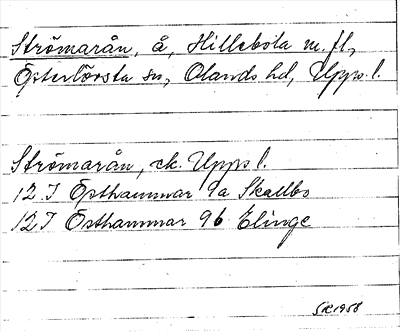 Strömarån, å, Hillebola m. fl.,
Österlövsta sn, Olands hd, Upps l.
Strömarån, ek. Upps l.
12 I Östhammar 9a Skallbo
12 I Östhammar 9b Elinge
SR 1958